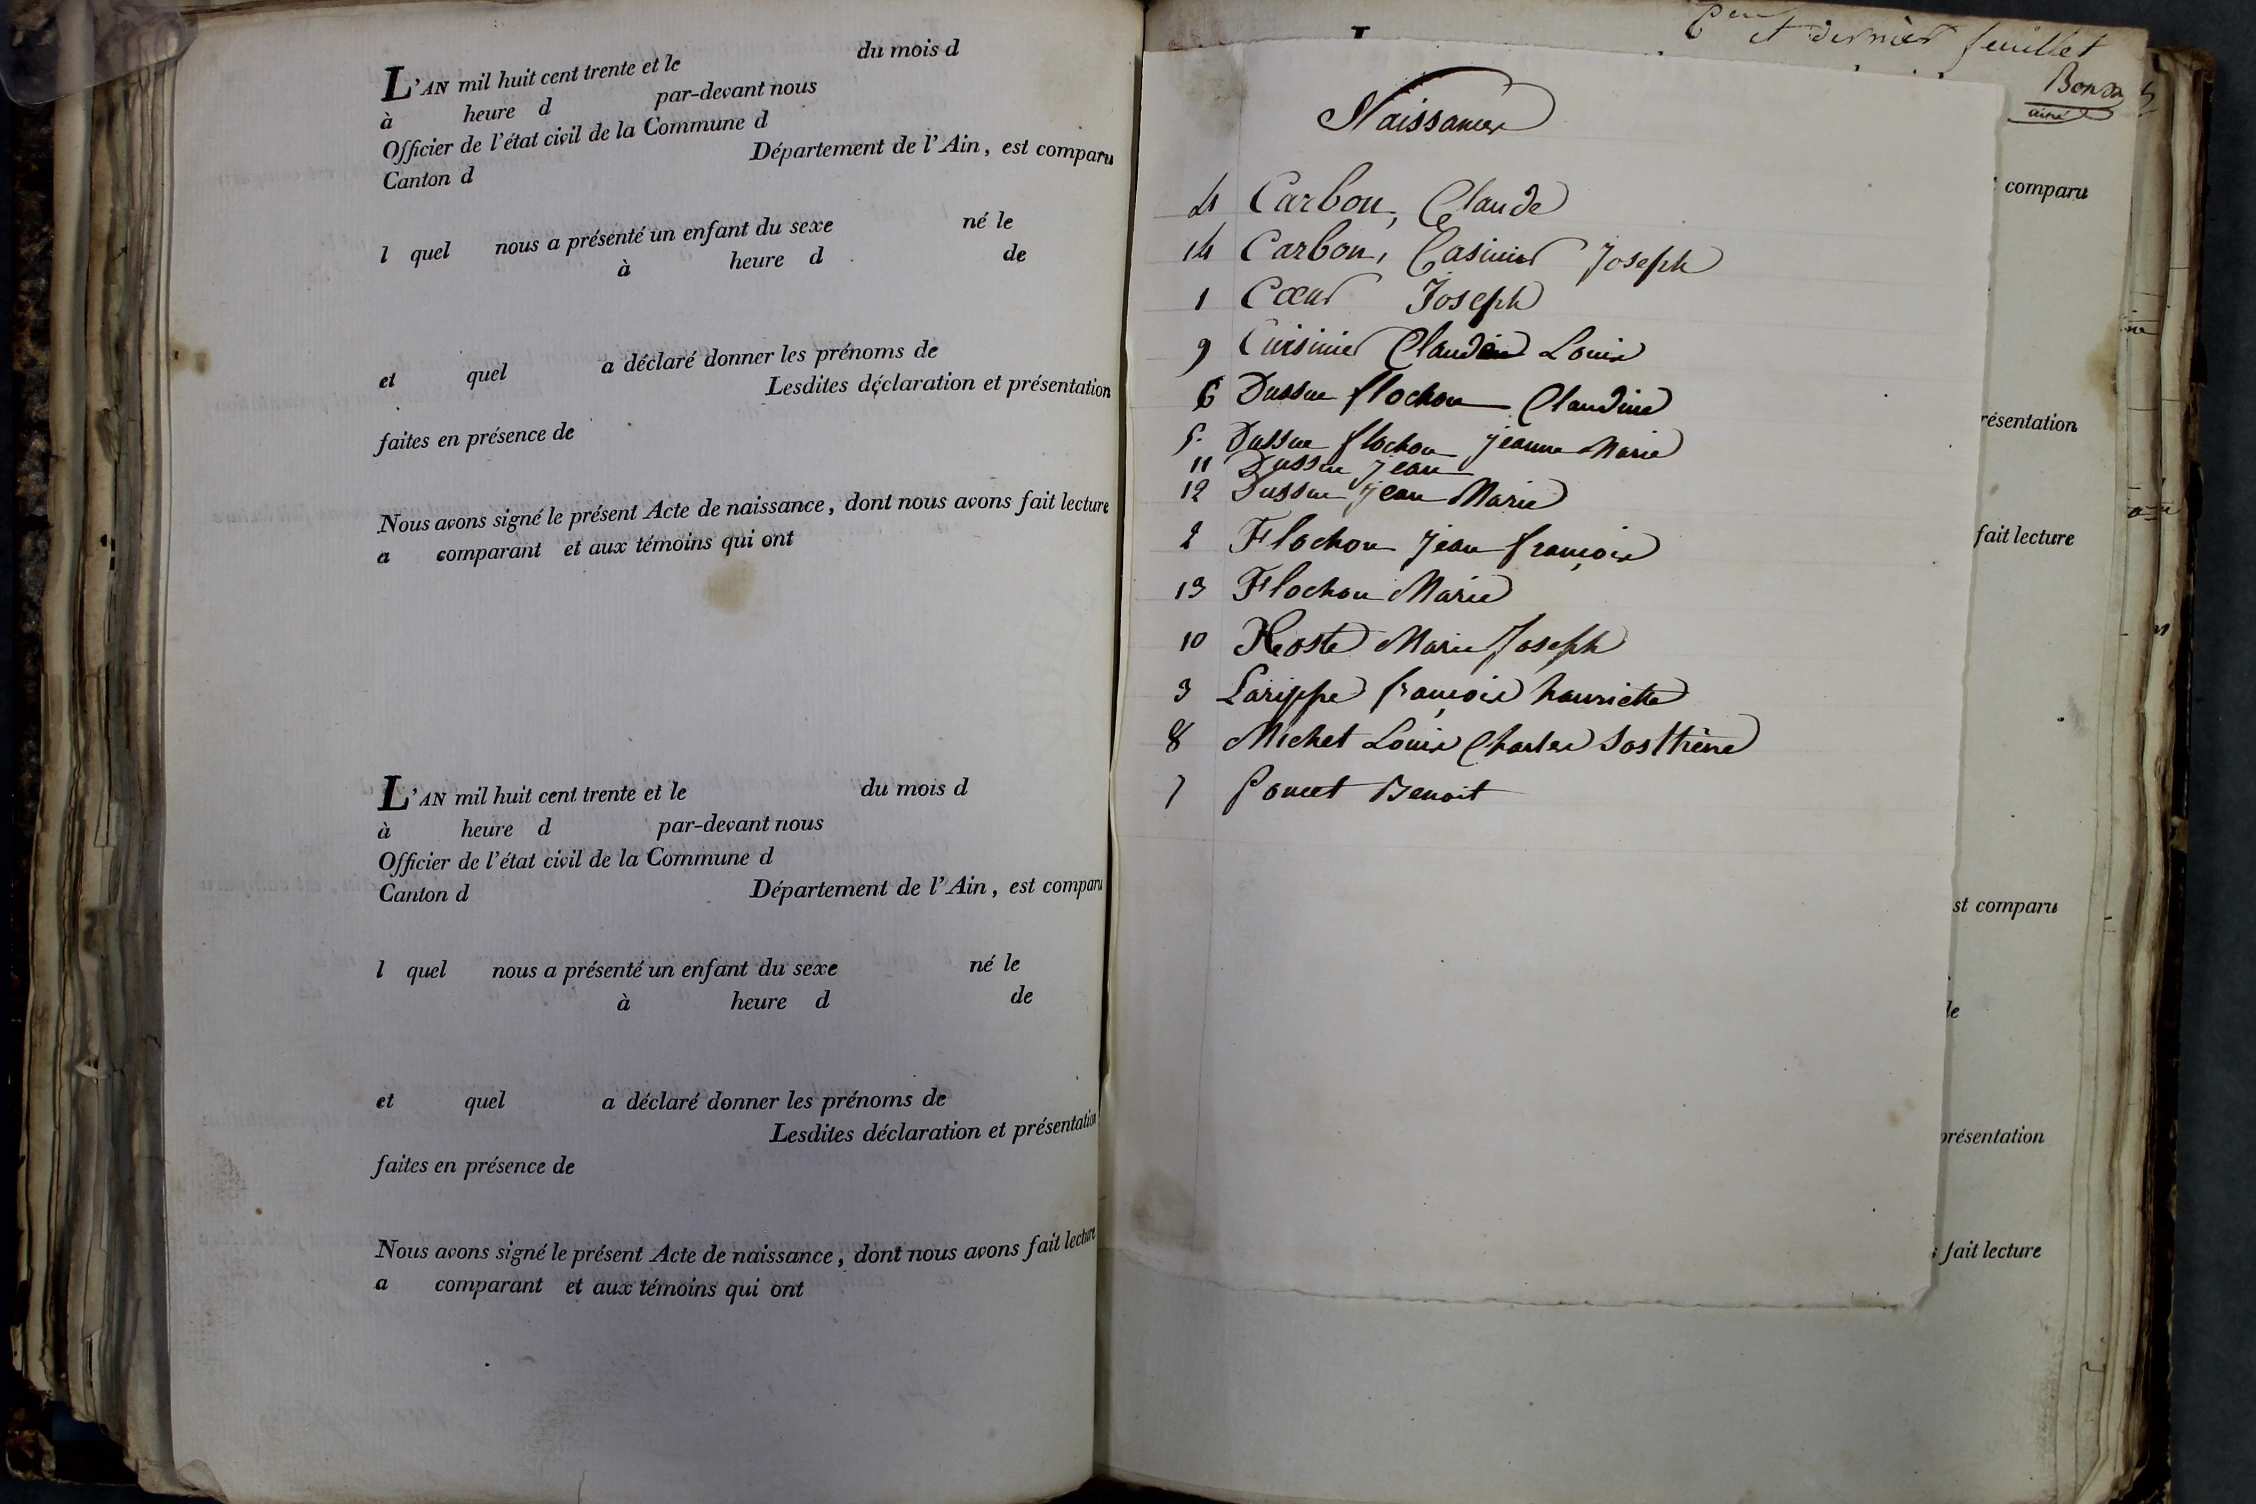 L'AN mil huit cent trente et le du mois d
à heure d par-devant nous
Officier de l'état civil de la Commune d
Canton d Département de l'Ain, est comparu
l quel nous a présenté un enfant du sexe né le
à heure d de
et quel a déclaré donner les prénoms de
Lesdites déclaration et présentation
faites en présence de
Nous avons signé le présent Acte de naissance, dont nous avons fait lecture
a comparant et aux témoins qui ont
L'AN mil huit cent trente et le du mois d
à heure d par-devant nous
Officier de l'état civil de la Commune d
Canton d Département de l'Ain, est comparu
l quel nous a présenté un enfant du sexe né le
à heure d de
et quel a déclaré donner les prénoms de
Lesdites déclaration et présentation
faites en présence de
Nous avons signé le présent Acte de naissance, dont nous avons fait lecture
a comparant et aux témoins qui ont
et dernier feuillet
Naissances
4 Carbon, Claude
14 Carbon, Casimir Joseph
1 Cœur Joseph
9 Cuisinier Claudin Louis
6 Dussue flochon Claudine
5. Dussue flochon jeanne Marie
11 Dussue jean
12 Dussue jean Marie
2 Flochon jean françois
13 Flochon Marie
10 Hoste Marie Joseph
3 Larippe françois hauriette
8 Michet Louis Charles Sosthène
7 Poncet Benoit
comparu
résentation
fait lecture
st comparu
de
présentation
s fait lecture